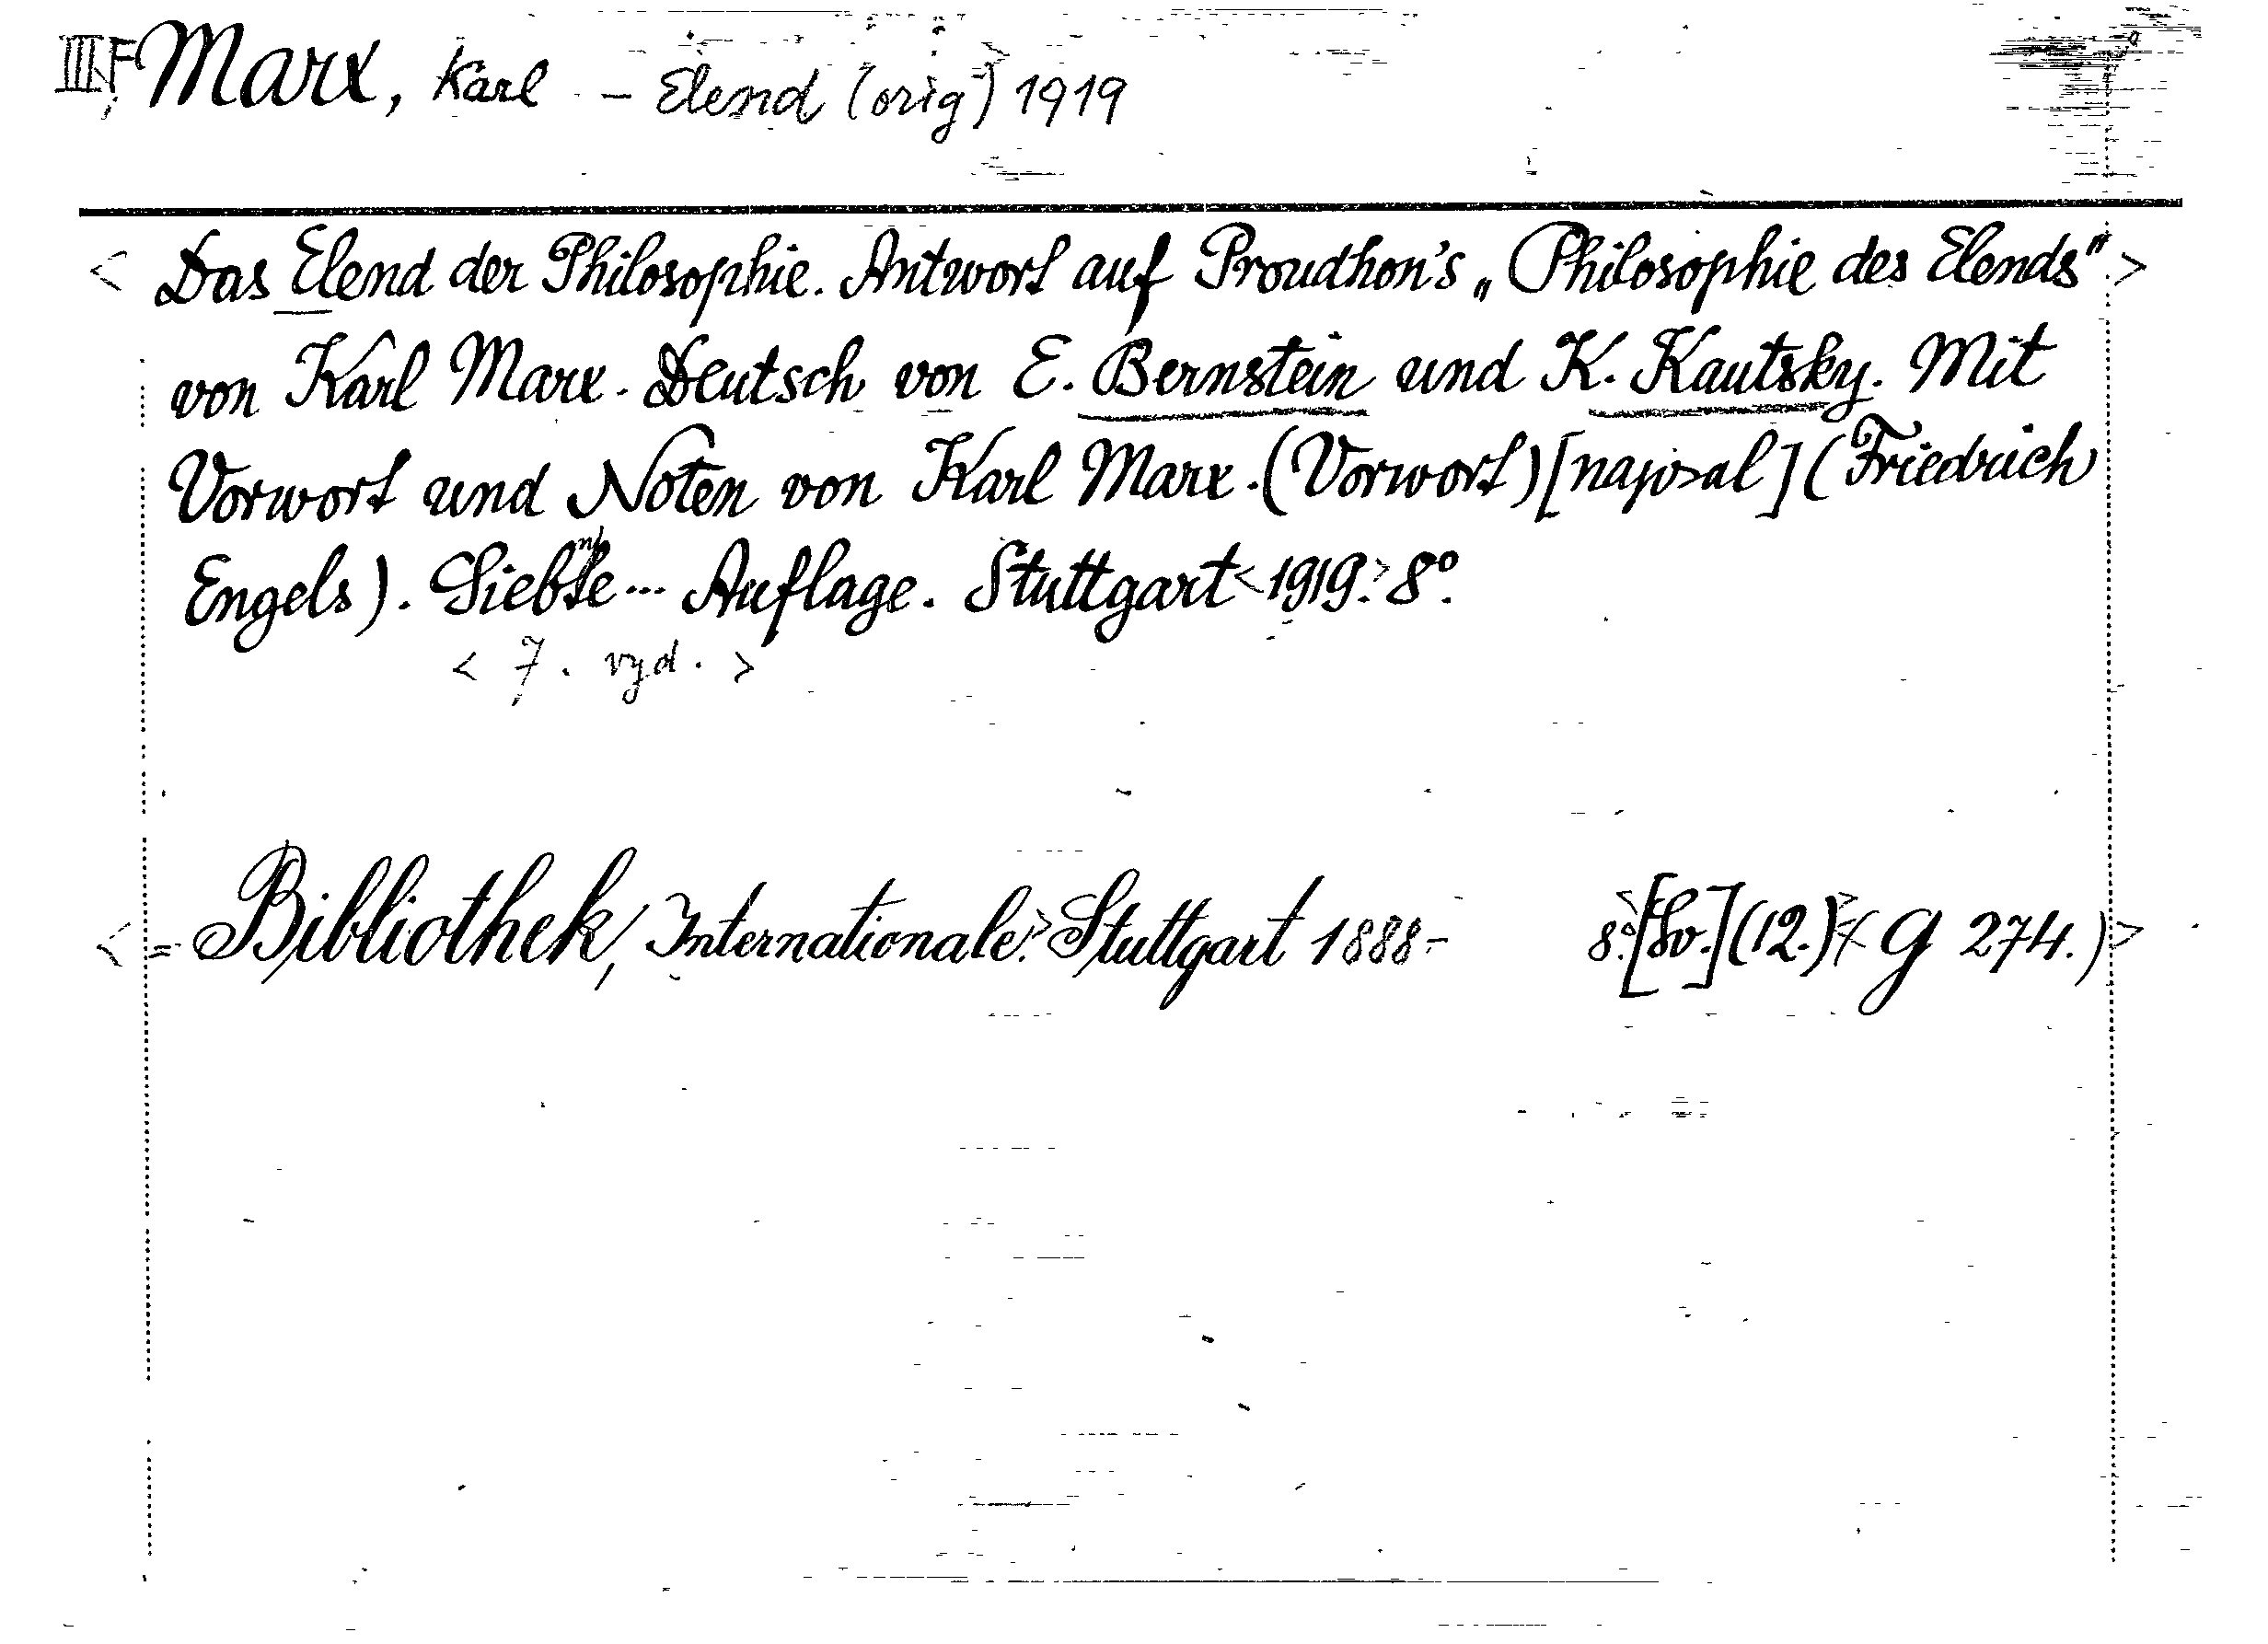 III F Marx, Karl – Elend (orig) 1919
< Das Elend der Philosophie. Antwort auf Proudhon's „Philosophie des Elends" >
von Karl Marx. Deutsch von E. Bernstein und K. Kautsky. Mit
Vorwort und Noten von Karl Marx. (Vorwort) [napsal] (Friedrich
Engels). Siebte ... Auflage. Stuttgart <1919.> 8°.
< 7. vyd. >
< = Bibliothek, Internationale.> Stuttgart 1888- 8°. [Sv.] (12.) < (G 274.) >